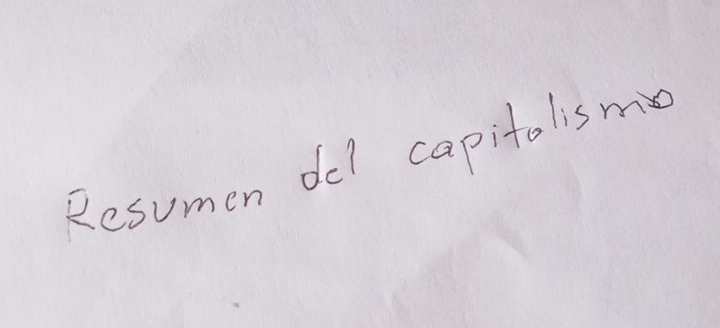 Resumen del capitalismo